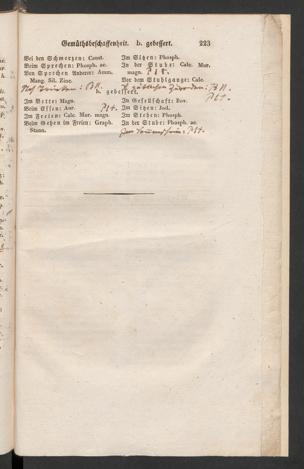 Gemüthsbeschaffenheit. b. gebessert. 223
Bei den Schmerzen: Canst.
Beim Sprechen: Phosph. ac.
Von Sprechen Anderer: Amm.
Mang. Sil. Zinc.
Im Sitzen: Phosph.
In der Stube: Calc. Mur.
magn.
Vor dem Stuhlgange: Calc.
b. gebessert.
Im Bette: Magn.
Beim Essen: Aur.
Im Freien: Calc. Mur. magn.
Beim Gehen im Freien: Graph.
Stann.
In Gesellschaft: Bov.
Im Sitzen: Jod.
Im Stehen: Phosph.
In der Stube: Phosph. ac.